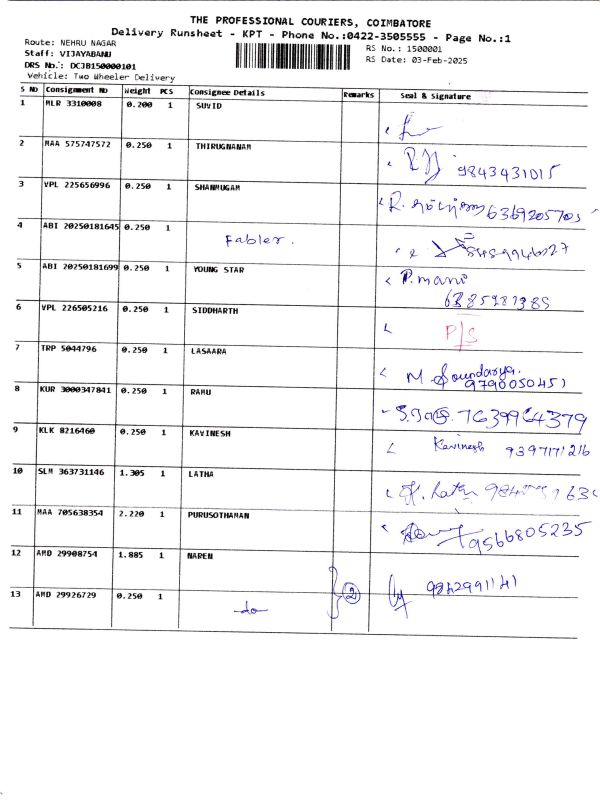 THE PROFESSIONAL COURIERS, COIMBATORE
Delivery Runsheet - KPT - Phone No.:0422-3505555 - Page No.:1
Route: NEHRU NAGAR
RS No.: 1500001
Staff: VIJAYABANU
RS Date: 03-Feb-2025
DRS No.: DCJB150000101
Vehicle: Two Wheeler Delivery
S No Consignment No Weight PCS Consignee Details Remarks Seal & Signature
1 MLR 3310008 0.200 1 SUVID
2 MAA 575747572 0.250 1 THIRUGNANAM 9843431015
3 VPL 225656996 0.250 1 SHANMUGAM R. 6369205705
4 ABI 20250181645 0.250 1 Fabler.
5 ABI 20250181699 0.250 1 YOUNG STAR P.mani
6385981385
6 VPL 226505216 0.250 1 SIDDHARTH P/S
7 TRP 5044796 0.250 1 LASAARA M Soundarya.
9790050451
8 KUR 3000347841 0.250 1 RAMU 7639964379
9 KLK 8216460 0.250 1 KAVINESH Kavinesh 9397171216
10 SLM 363731146 1.305 1 LATHA
11 MAA 705638354 2.220 1 PURUSOTHAMAN 9566805235
12 AMD 29908754 1.885 1 NAREN 2 9842991141
13 AMD 29926729 0.250 1 do